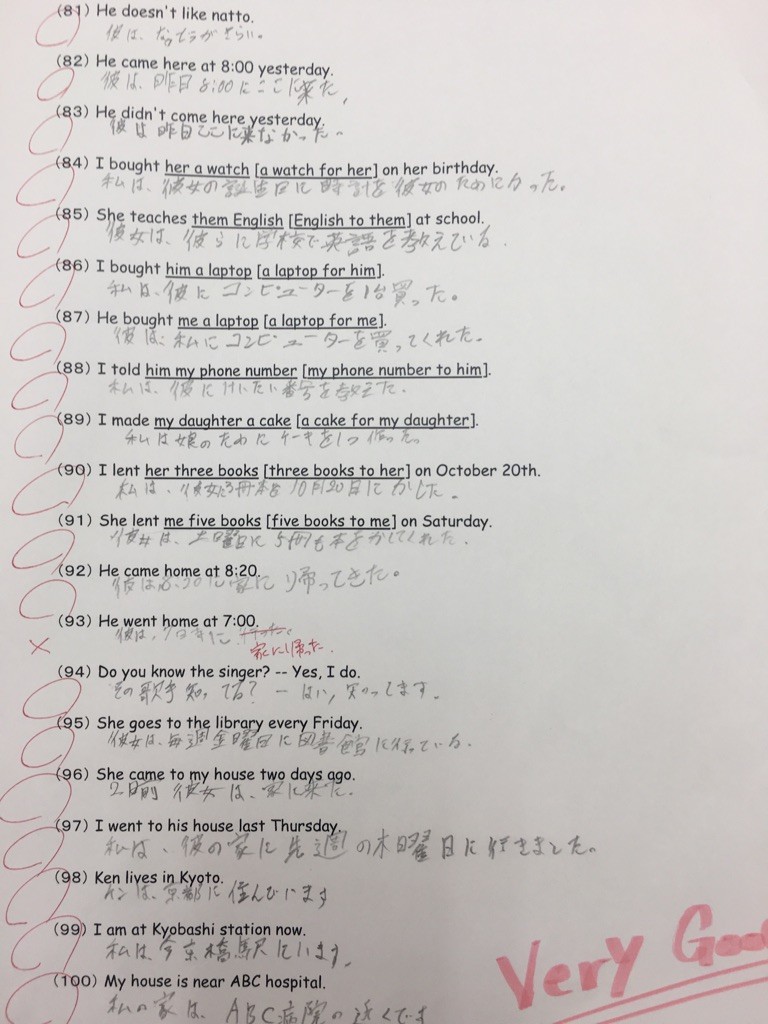 (81) He doesn't like natto.
彼は、なっとうがきらい。
(82) He came here at 8:00 yesterday.
彼は、昨日 8:00にここに来た。
(83) He didn't come here yesterday.
彼は昨日ここに来なかった。
(84) I bought her a watch [a watch for her] on her birthday.
私は、彼女の誕生日に時計を彼女のためにかった。
(85) She teaches them English [English to them] at school.
彼女は、彼らに学校で英語を教えている.
(86) I bought him a laptop [a laptop for him].
私は、彼にコンピューターを1台買った。
(87) He bought me a laptop [a laptop for me].
彼は、私にコンピューターを買ってくれた。
(88) I told him my phone number [my phone number to him].
私は、彼にけいたい番号を教えた.
(89) I made my daughter a cake [a cake for my daughter].
私は娘のためにケーキを1つ作った。
(90) I lent her three books [three books to her] on October 20th.
私は、彼女に3冊本を10月20日にかした.
(91) She lent me five books [five books to me] on Saturday.
彼女は、土曜日に5冊も本をかしてくれた.
(92) He came home at 8:20.
彼は8:20に家に帰ってきた。
(93) He went home at 7:00.
彼は、7時に
家に帰った.
(94) Do you know the singer? -- Yes, I do.
その歌手知ってる? ーはい,知ってます.
(95) She goes to the library every Friday.
彼女は、毎週金曜日に図書館に行ている.
(96) She came to my house two days ago.
2日前 彼女は、家に来た.
(97) I went to his house last Thursday.
私は、彼の家に先週の木曜日に行きました。
(98) Ken lives in Kyoto.
ケンは、京都に住んでいます
(99) I am at Kyobashi station now.
私は今京橋駅にいます.
(100) My house is near ABC hospital.
私の家は、ABC病院の近くです
Very Good